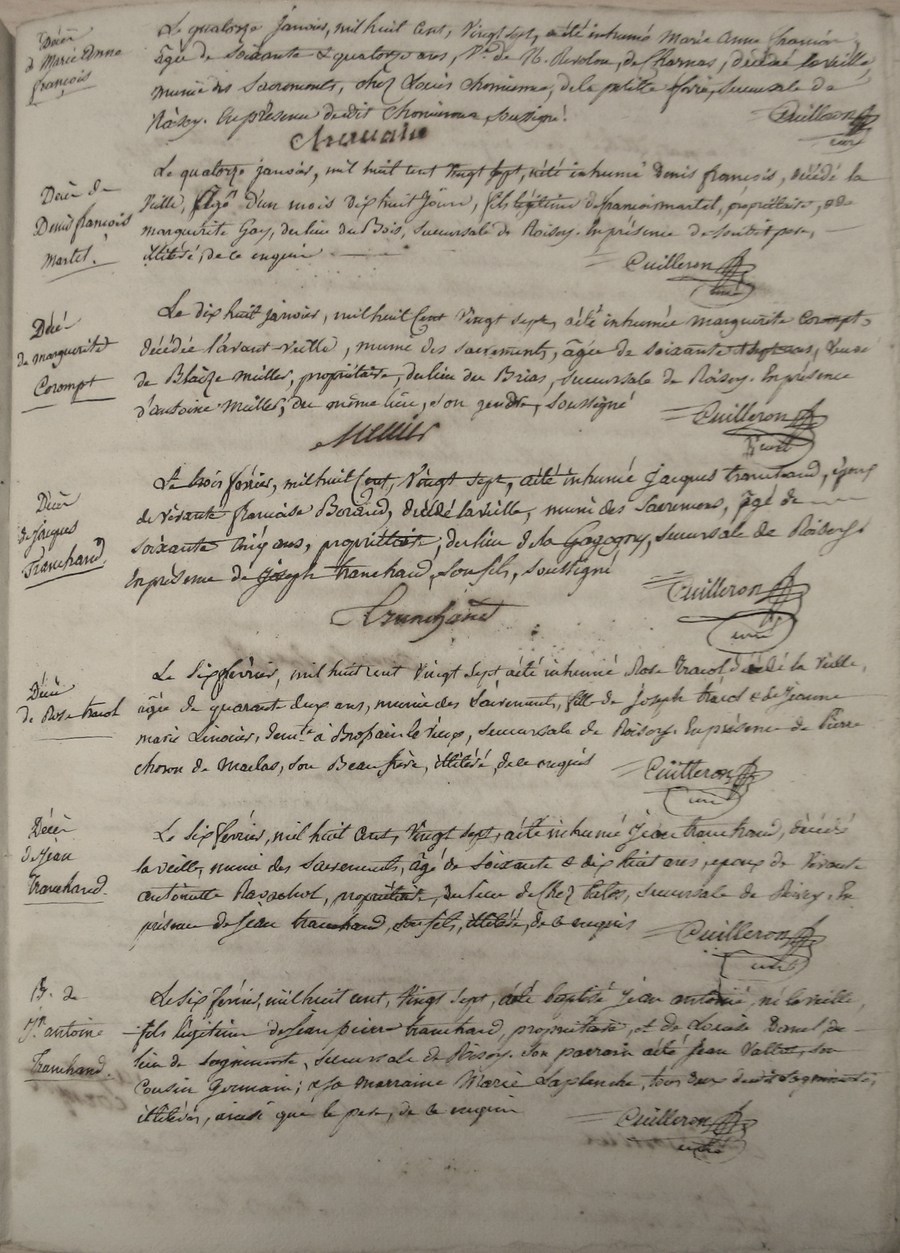 Décès
de Marie Anne
françois
Le quatorze janvier, mil huit cent, vingt sept, a été inhumée Marie Anne françois,
âgée de soixante & quatorze ans, Ve. de decedée la veille,
munie des Sacrements, chez Louis Chomienne, de la petite forie, succursale de
Roisey. En présence du dit Chomienne, soussigné.
Cuilleron
curé
Décès de
Denis françois
Martel.
Le quatorze janvier, mil huit cent vingt sept, a été inhumé denis françois, décédé la
veille, âgé d'un mois dix huit jours, fils légitime de françois martel, propriétaire, & de
marguerite Gay, du lieu du Bois, succursale de Roisey. En présence de sondit pere,
illitéré, de ce enquis
Cuilleron
curé
Décès
de marguerite
Corompt
Le dix huit janvier, mil huit Cent vingt sept, a été inhumée marguerite Corompt
décédée l'avant-veille, munie des sacrements, âgée de soixante & sept ans, veuve
de Blaize Mullier, propriétaire, du lieu du Brias, succursale de Roisey. En présence
d'antoine Mullier, du même lieu, son gendre, soussigné
Cuilleron
curé
Décès
de Jacques
Tranchand.
Le trois février, mil huit Cent, vingt sept, a été inhumé Jacques tranchand, époux
de vivante françoise décédé la veille, muni des Sacremens, âgé de
soixante ans, propriettaire, du lieu de la succursale de Roisey.
En présence de Joseph tranchand, son fils, soussigné
Cuilleron
Tranchand
curé
Décès
de Rose
Le six février, mil huit cent vingt sept a été inhumé Rose décédé la veille,
âgée de quarante deux ans, munie des Sacrements, fille de Joseph & de Jeanne
marie demte. à succursale de Roisey. En présence de Pierre
de Maclas, son Beau frère, illitéré, de ce enquis
Cuilleron
curé
Décès
de Jean
tranchand.
Le six février, mil huit cent, vingt sept, a été inhumé Jean tranchand, décédé
la veille, muni des Sacrements, âgé de soixante & dix huit ans, epoux de vivante
antoinette propriétaire, du lieu de Chez succursale de Roisey. En
présence de Jean tranchand, son fils, illitéré, de ce enquis
Cuilleron
curé
B. de
Jn. antoine
Tranchand.
Le six février, mil huit cent, vingt sept, a été baptisé Jean antoine, né la veille,
fils légitime de Jean pierre tranchand, propriétaire, et de Louise du
lieu de succursale de Roisey. Son parrain a été Jean son
Cousin Germain; & sa marraine Marie Laplanche, tous deux
illitérés, ainsi que le pere, de ce enquis
Cuilleron
curé